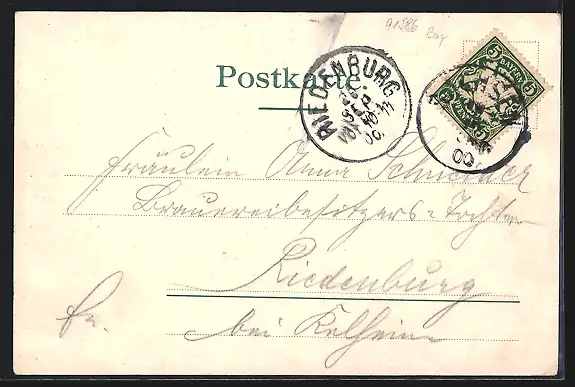 91586 Bay
Postkarte
RIEDENBURG
SEP.
VOR. 10-11
00.
5 BAYERN 5
PFENNIG
00
Fräulein Anna Schneider
Brauereibesitzers-Tochter
Riedenburg
Fr.
bei Kelheim